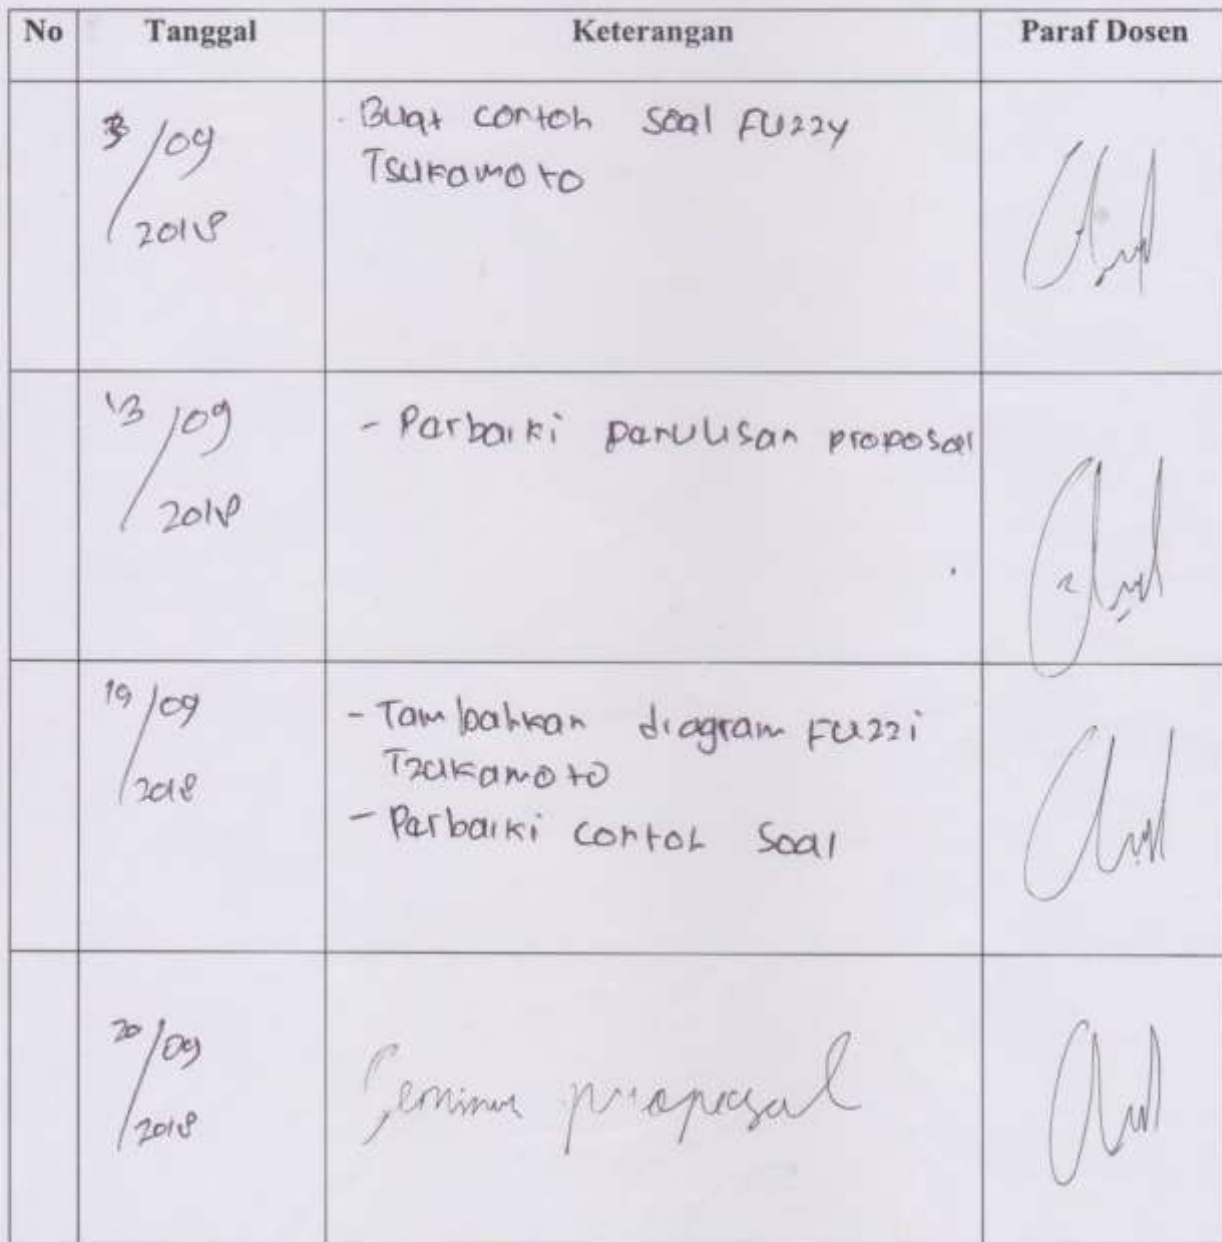 No Tanggal Keterangan Paraf Dosen
3/09/2018
- Buat contoh soal Fuzzy
Tsukamoto
13/09/2018
- Perbaiki penulisan proposal
19/09/2018
- Tambahkan diagram Fuzzi
Tzukamoto
- Perbaiki contoh soal
20/09/2018
Seminar proposal